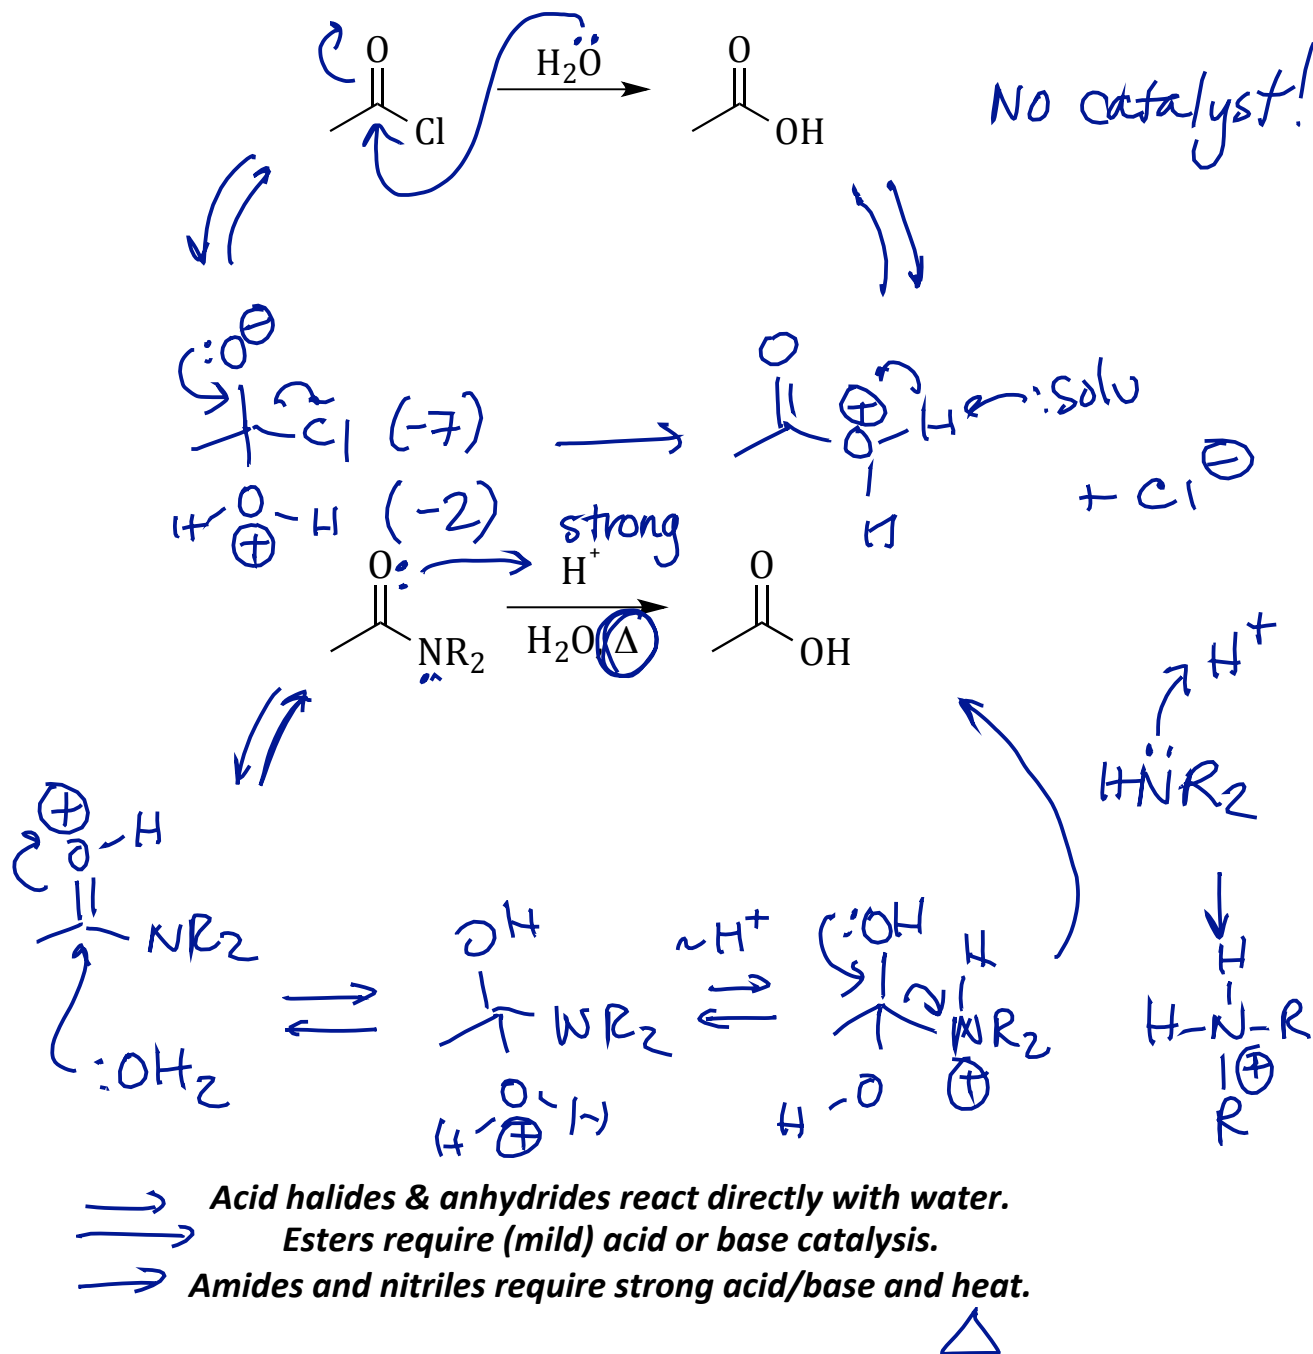 O
H₂O
O
Cl
OH
No catalyst!
:O⊖
Cl (-7)
H-O-H (-2)
⊕
O
⊕
O-H :solv
H
+ Cl⊖
strong
O:
H⁺
O
NR₂
H₂O, Δ
OH
H⁺
HNR₂
⊕
O-H
NR₂
:OH₂
OH
NR₂
H O H
⊕
~H⁺
:OH
H
NR₂
⊕
H-O
H
H-N-R
⊕
R
Acid halides & anhydrides react directly with water.
Esters require (mild) acid or base catalysis.
Amides and nitriles require strong acid/base and heat.
Δ